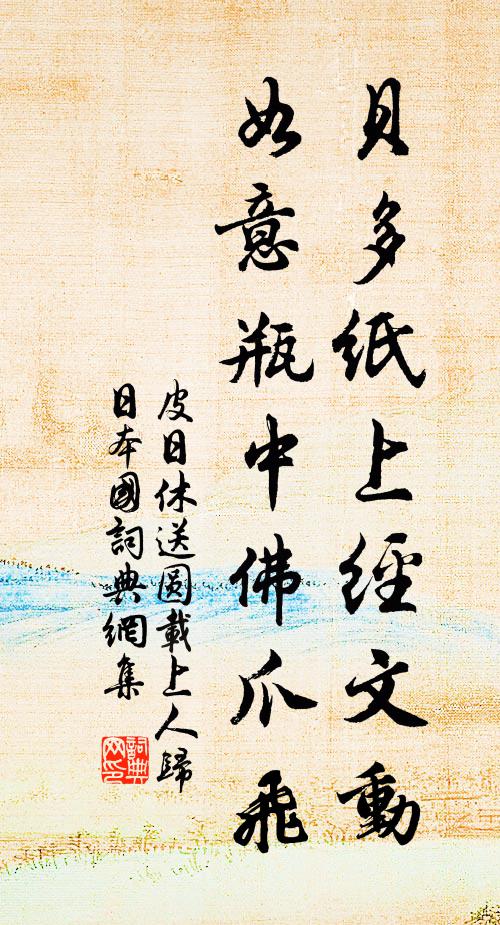 貝多紙上經文動
如意瓶中佛爪飛
皮日休送圓載上人歸
日本國詞典網集
詞典
网印